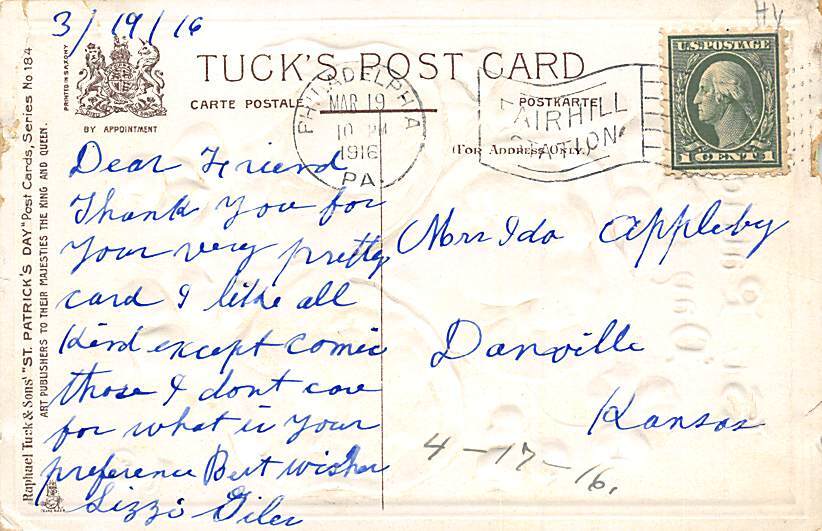 3/19/16
HV
U.S. POSTAGE
1 CENT 1
TUCK'S POST CARD
CARTE POSTALE
POSTKARTE
(FOR ADDRESS ONLY.)
BY APPOINTMENT
PRINTED IN SAXONY
PHILADELPHIA
MAR 19
10 PM
1916
PA.
FAIRHILL
STATION.
Raphael Tuck & Sons' "ST. PATRICK'S DAY" Post Cards, Series No 184
ART PUBLISHERS TO THEIR MAJESTIES THE KING AND QUEEN.
Dear Friend
Thank you for
your very pretty
card I like all
Kind except comic
those I dont care
for what is your
preference Best wishes
Lizzi Giles
Mrs Ida Appleby
Danville
Kansas
4-17-16.